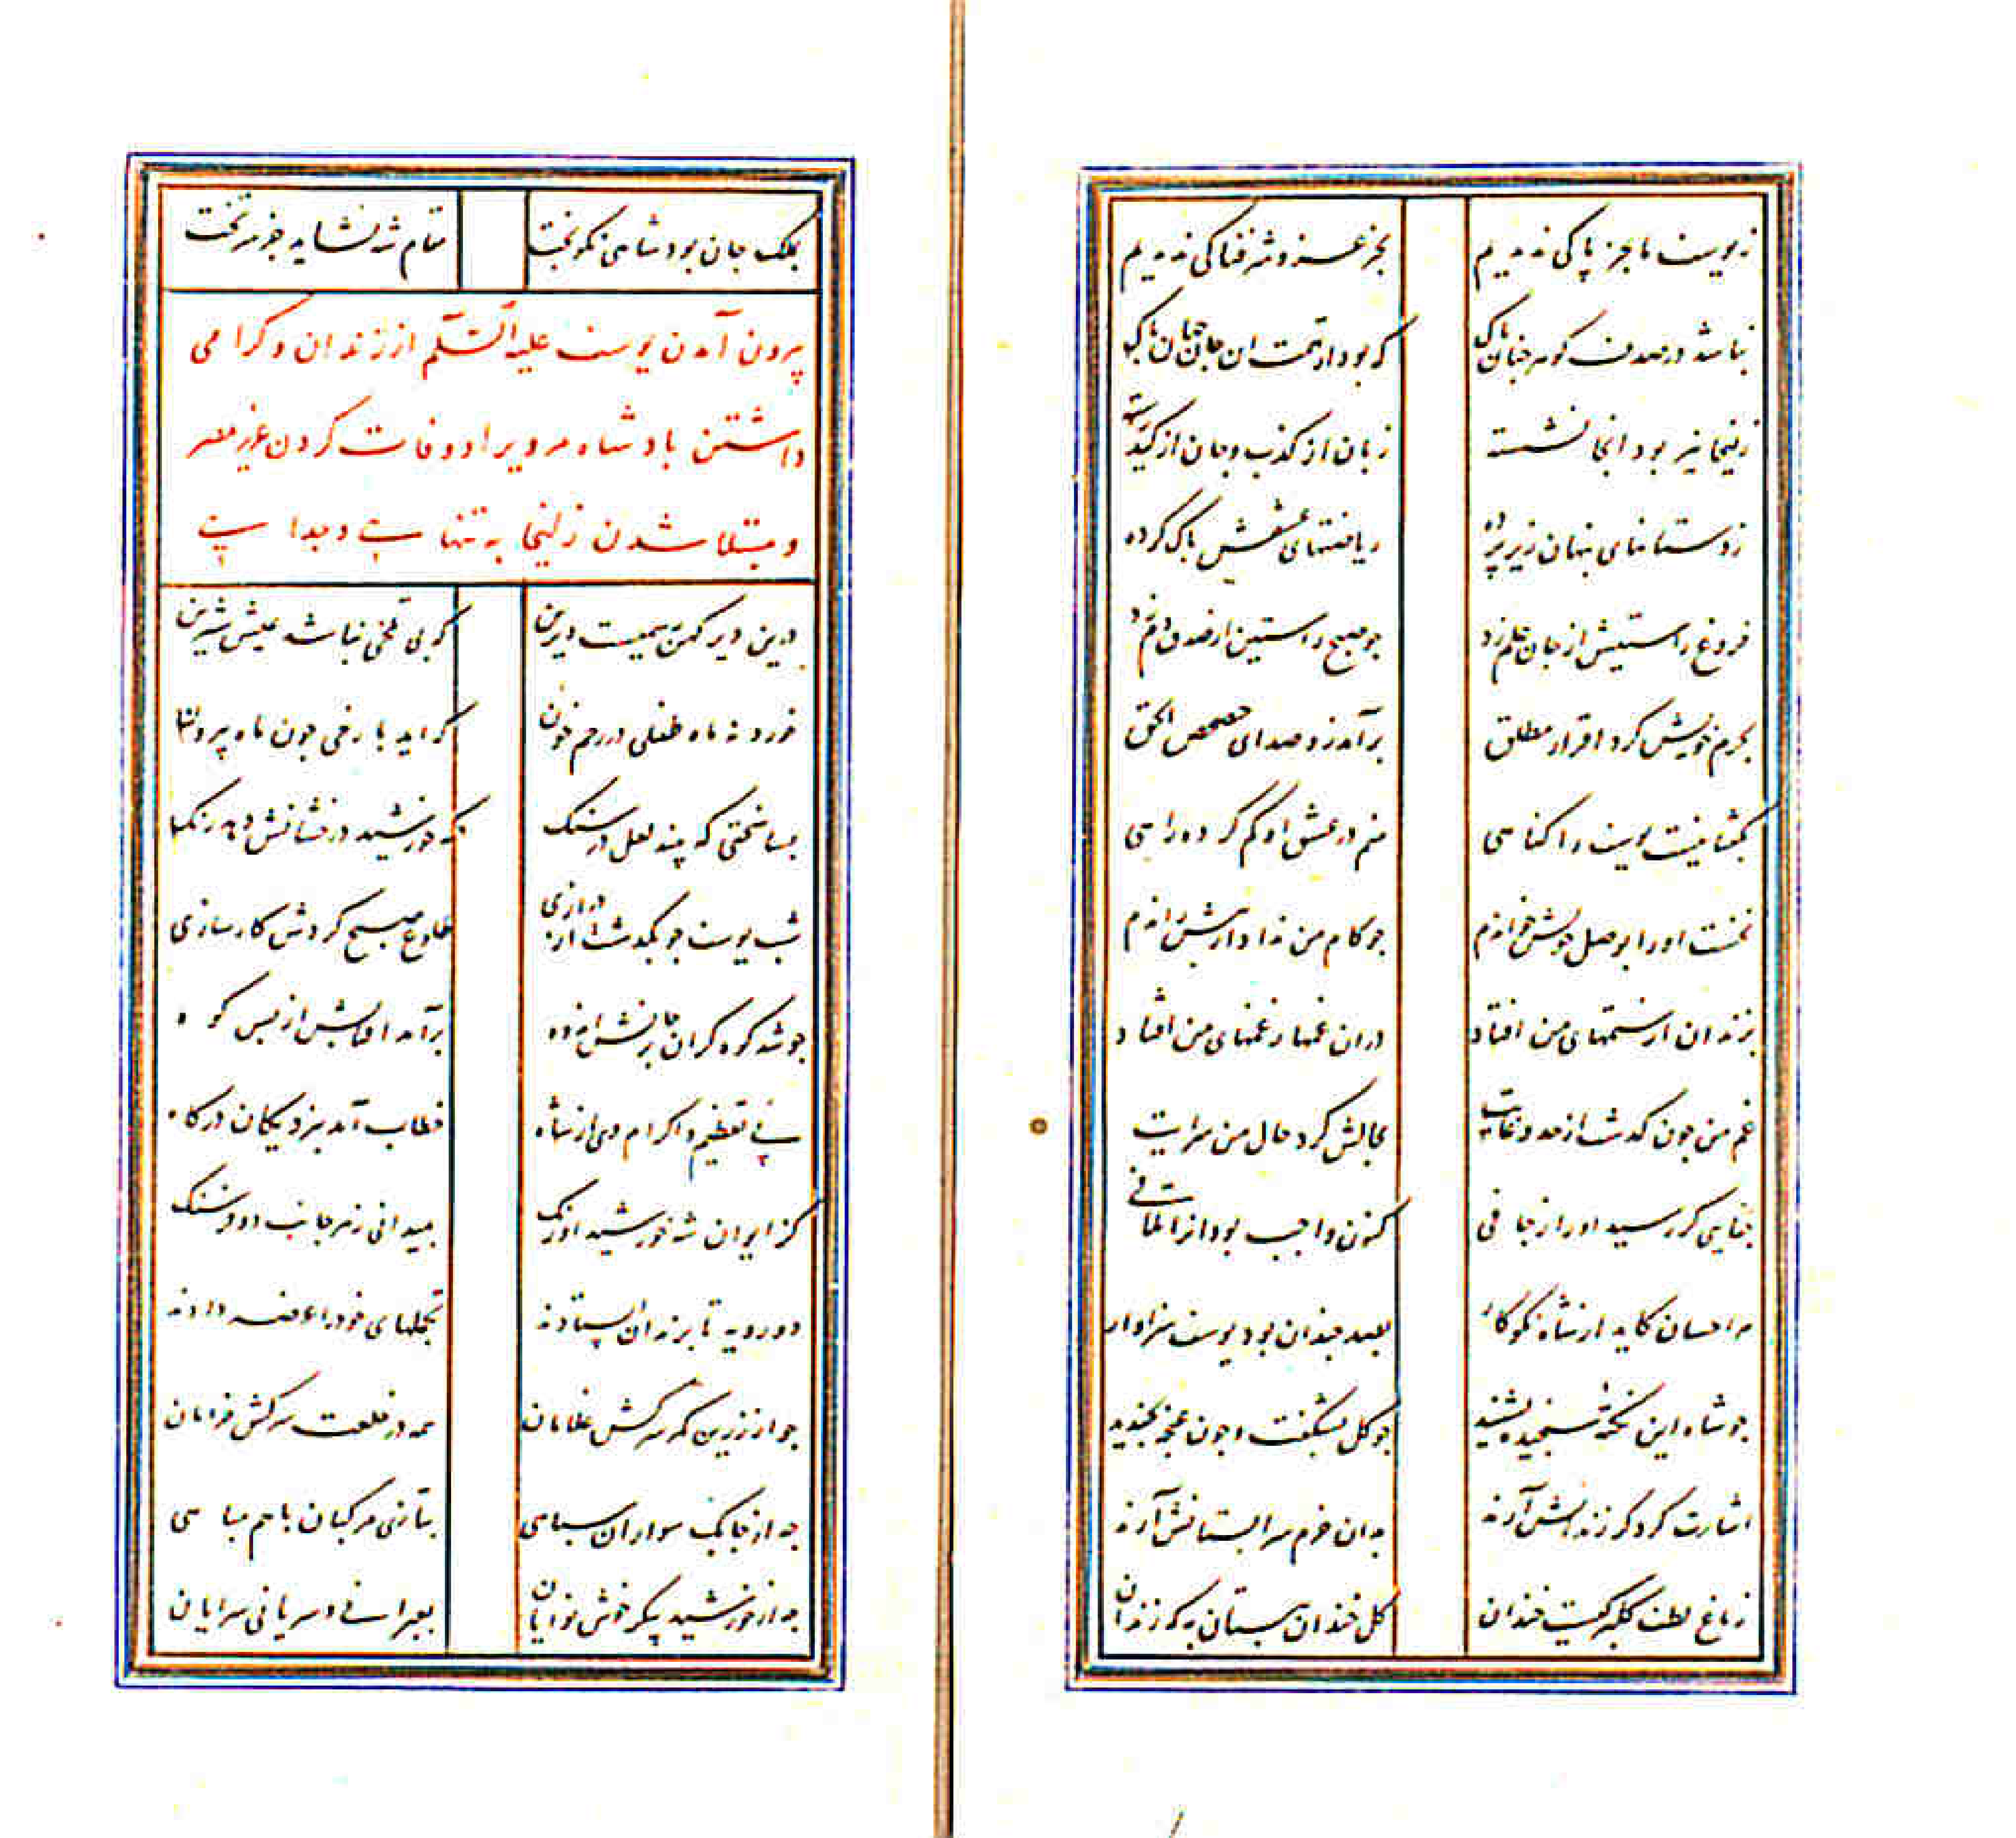 ز یوسف ما بجز پاکی ندیدیم بجز عز و شرفناکی ندیدیم
نباشد در صدف گوهر چنان پاک که بود از تهمت آن جان جهان پاک
زلیخا نیز بود آنجا نشسته زبان از کذب و جان از کید رسته
ز دستانهای پنهان زیر پرده ریاضتهای عشقش پاک کرده
فروغ راستیش از جان علم زد چو صبح راستین از صدق دم زد
بجرم خویش کرد اقرار مطلق برآمد زو صدای حصحص الحق
بگفتا نیست یوسف را گناهی منم در عشق او گم کرده راهی
نخست او را بوصل خویش خواندم چو کام من نداد از پیش راندم
بزندان از ستمهای من افتاد در آن غمها ز غمهای من افتاد
غم من چون گذشت از حد و غایت بحالش کرد حال من سرایت
جفایی گر رسید او را ز جافی کنون واجب بود او را تلافی
هر احسان کاید از شاه نکوکار بصد چندان بود یوسف سزاوار
چو شاه این نکته سنجیده بشنید چو گل بشگفت و چون غنچه بخندید
اشارت کرد کز زندانش آرند بدان خرم سرابستانش آرند
ز باغ لطف گلبرگیست خندان گل خندان بستان به که زندان
بملک جان بود شاهی نکوبخت مقام شه نشاید جز سر تخت
بیرون آمدن یوسف علیه السلام از زندان و گرامی
داشتن بادشاه مر ویرا و وفات کردن عزیز مصر
و مبتلا شدن زلیخا به تنهایی و جدایی
درین دیر کهن رسمیست دیرین که بی تلخی نباشد عیش شیرین
خورد نه ماه طفلی در رحم خون که آید با رخی چون ماه بیرون
بسا سختی که بیند لعل در سنگ که خورشید درخشانش دهد رنگ
شب یوسف چو بگذشت از درازی طلوع صبح کردش کارسازی
چو شد کوه گران بر جانش اندوه برآمد آفتابش از پس کوه
پی تعظیم و اکرام وی از شاه خطاب آمد بنزدیکان درگاه
کز ایوان شه خورشید اورنگ بمیدانی ز هر جانب دو فرسنگ
دو رویه تا بزندان ایستادند تجملهای خود را عرضه دادند
چو از زرین کمر سرکش غلامان همه در خلعت سرکش خرامان
چه از چابک سواران سپاهی بتازی مرکبان باهم مباهی
چه از خورشید پیکر خوش نوایان بعبرانی و سریانی سرایان